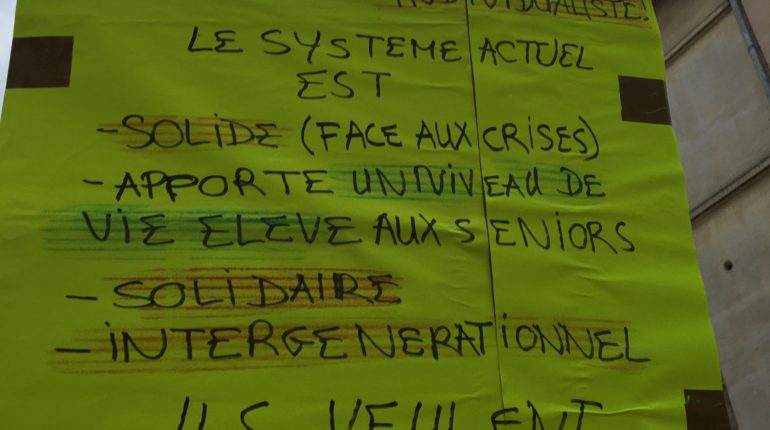 INDIVIDUALISTE!
LE SYSTEME ACTUEL
EST
-SOLIDE (FACE AUX CRISES)
-APPORTE UN NIVEAU DE
VIE ELEVE AUX SENIORS
- SOLIDAIRE
- INTERGENERATIONNEL
ILS VEULENT